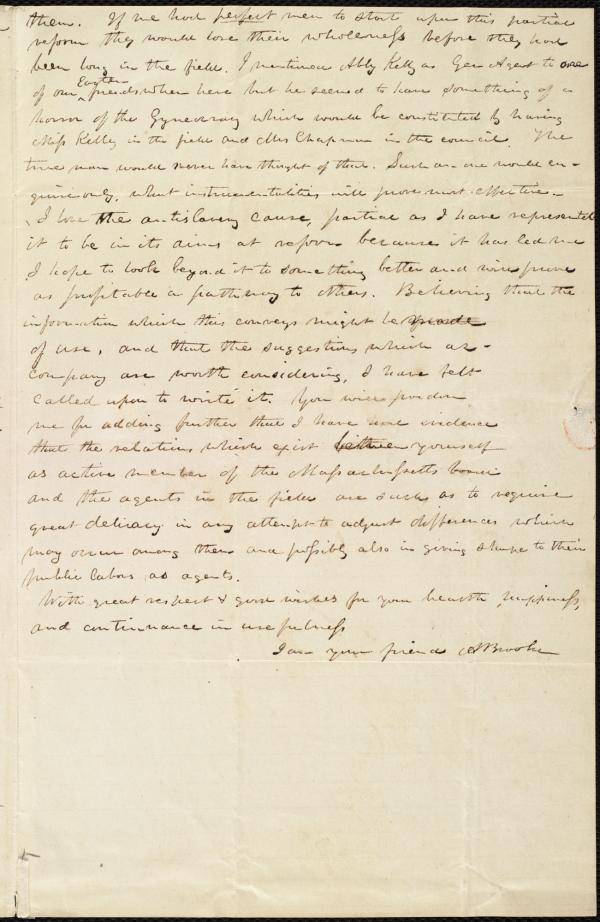 them. If we had perfect men to start upon this partial
reform they would lose their wholeness before they had
been long in the field. I mentioned Abby Kelly as Gen Agent to one
of our Eastern friends when here but he seemed to have something of a
horror of the Gyneocracy which would be constituted by having
Miss Kelly in the field and Mrs Chapman in the council. The
true man would never have thought of that. Such an one would en-
quire only, what instrumentalities will prove most effective.
I love the antislavery cause, partial as I have represented
it to be in its aims at reform because it has led me
I hope to look beyond it to something better and will prove
as profitable a pathway to others. Believing that the
information which this conveys might be made
of use, and that the suggestions which ac-
company are worth considering, I have felt
called upon to write it. You will pardon
me for adding further that I have had evidence
that the relations which exist between yourself
as active member of the Massachusetts board
and the agents in the field are such as to require
great delicacy in any attempt to adjust differences which
may occur among them and possibly also in giving shape to their
public labors as agents.
With great respect & good wishes for your health, happiness,
and continuance in usefulness
I am your friend A Brooke